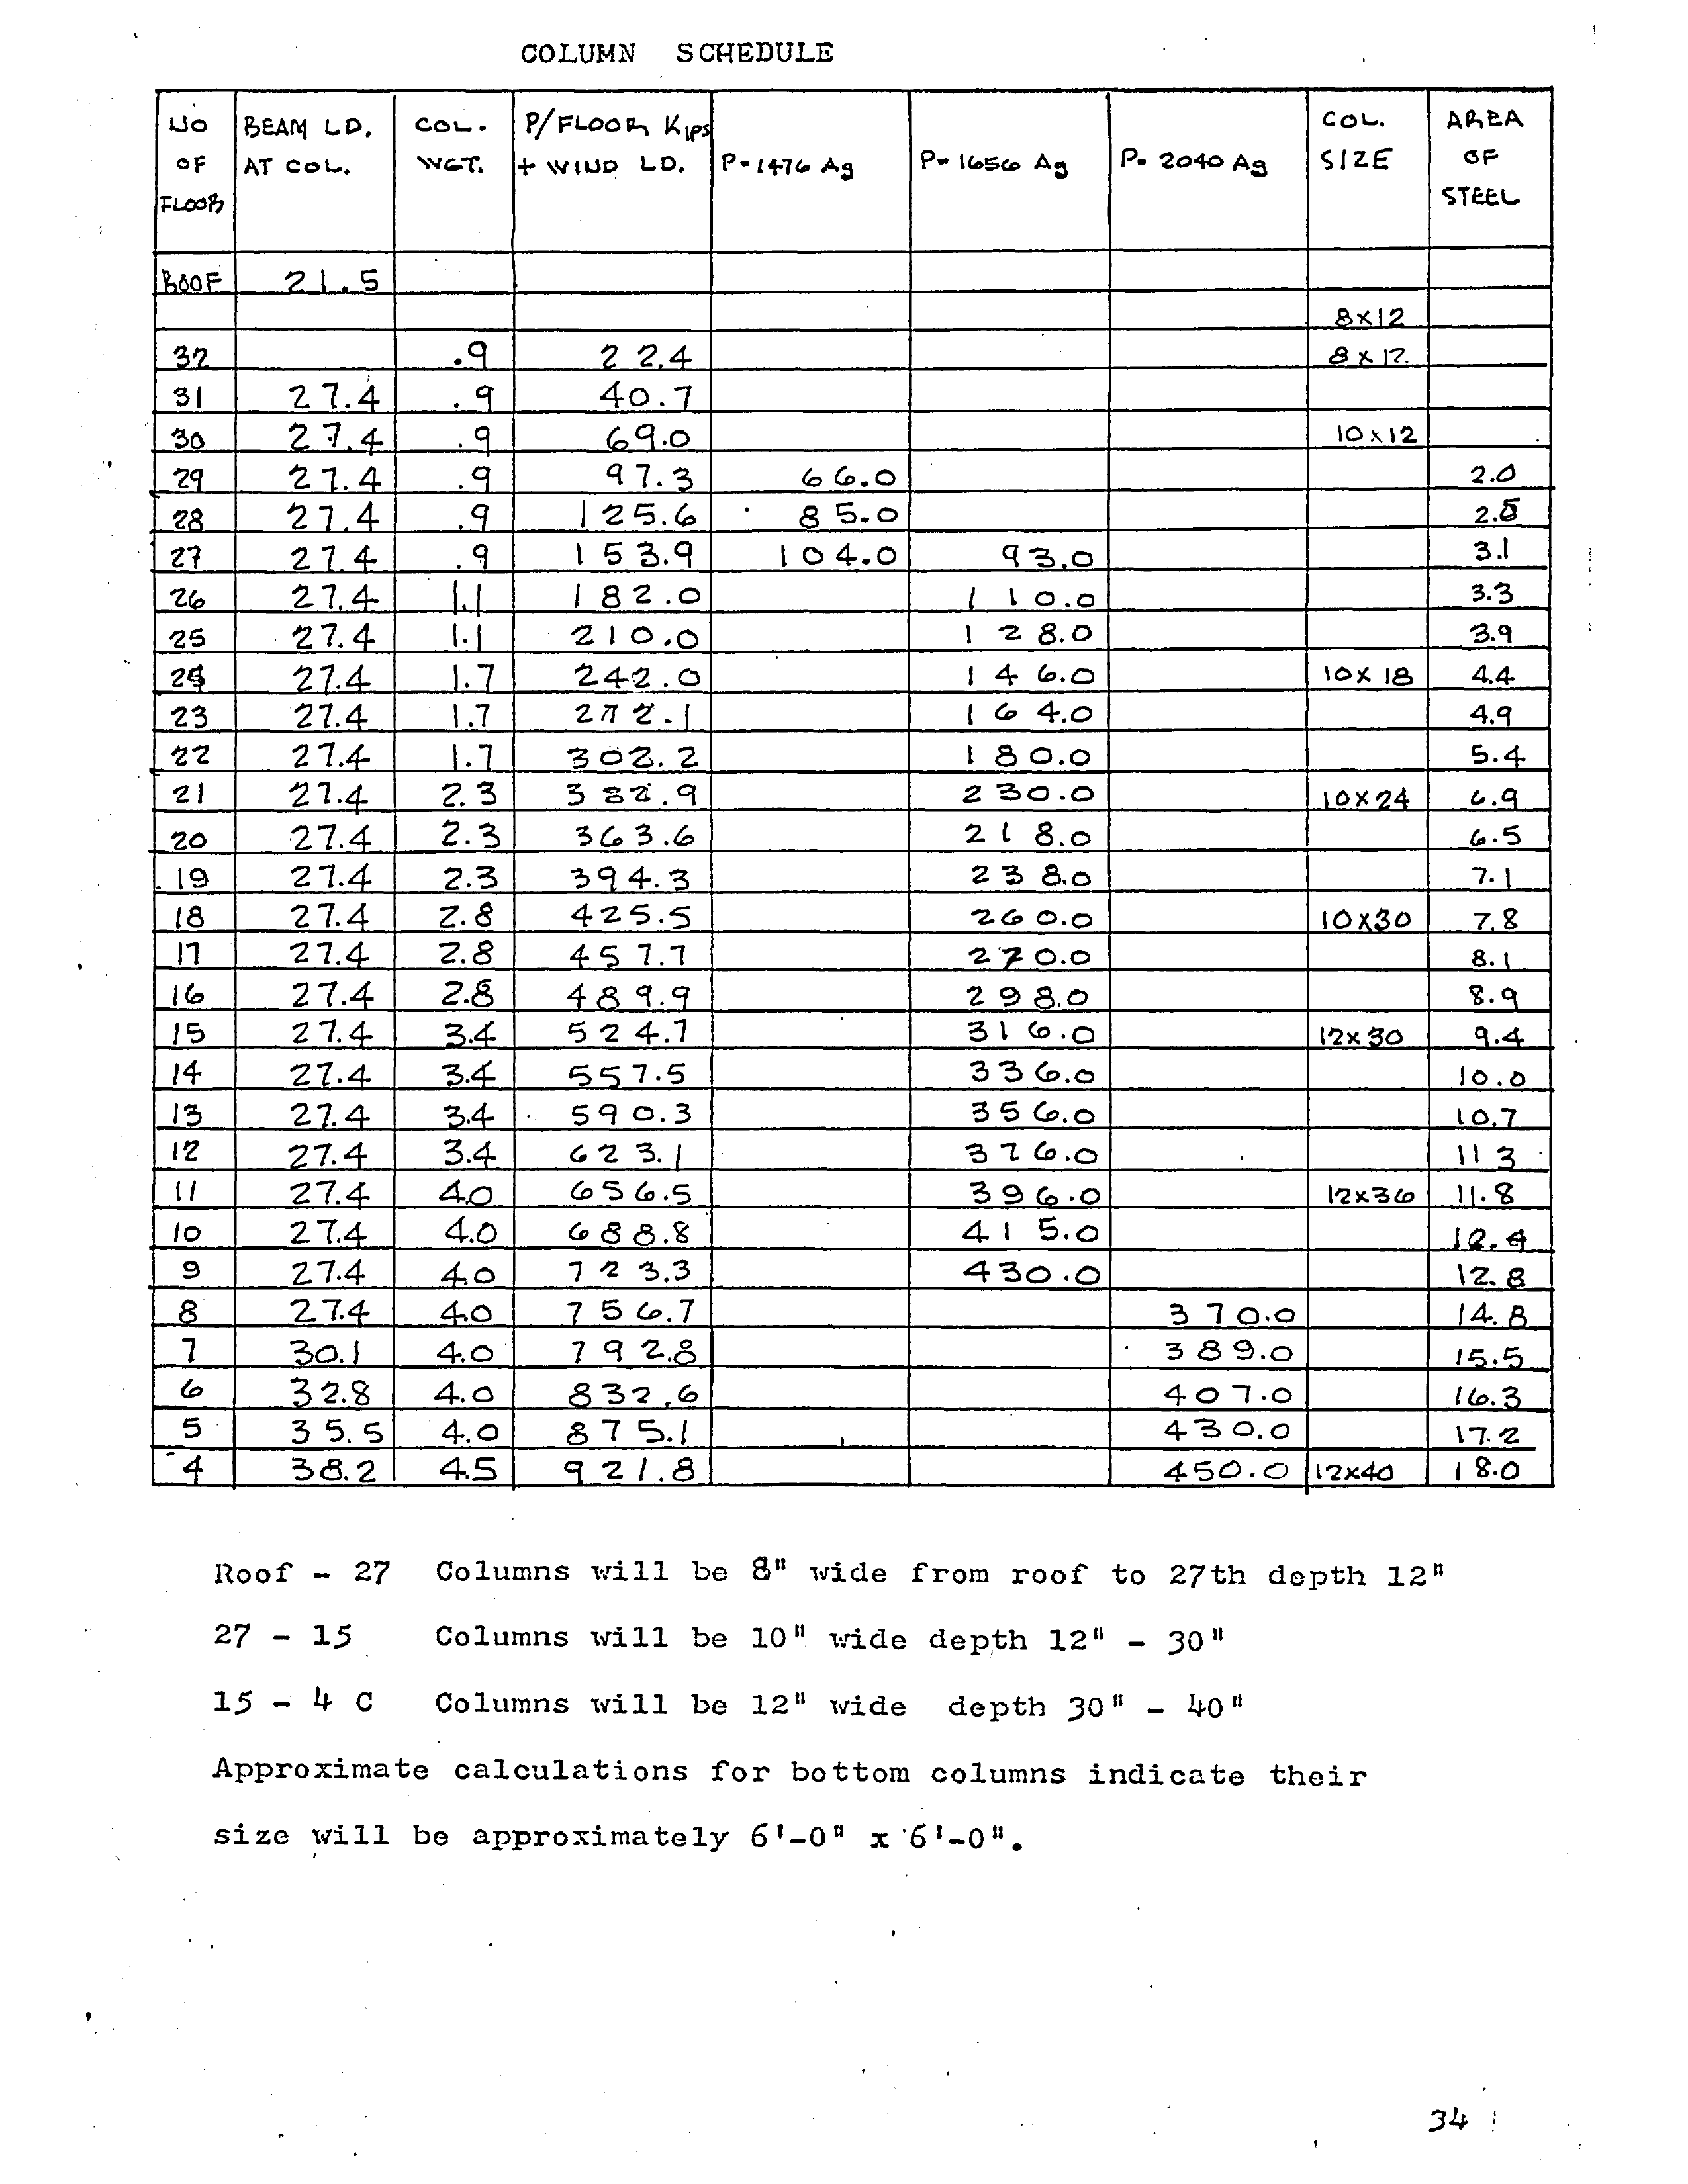 COLUMN SCHEDULE
NO OF FLOOR BEAM LD. AT COL. COL. WGT. P/FLOOR KIPS + WIND LD. P=1476 Ag P=1656 Ag P=2040 Ag COL. SIZE AREA OF STEEL
ROOF 21.5
8x12
32 .9 22.4 8x12
31 27.4 .9 40.7
30 27.4 .9 69.0 10x12
29 27.4 .9 97.3 66.0 2.0
28 27.4 .9 125.6 85.0 2.5
27 27.4 .9 153.9 104.0 93.0 3.1
26 27.4 1.1 182.0 110.0 3.3
25 27.4 1.1 210.0 128.0 3.9
24 27.4 1.7 242.0 146.0 10x18 4.4
23 27.4 1.7 272.1 164.0 4.9
22 27.4 1.7 302.2 180.0 5.4
21 27.4 2.3 230.0 10x24 6.9
20 27.4 2.3 363.6 218.0 6.5
19 27.4 2.3 394.3 238.0 7.1
18 27.4 2.8 425.5 260.0 10x30 7.8
17 27.4 2.8 457.7 270.0 8.1
16 27.4 2.8 489.9 298.0 8.9
15 27.4 3.4 524.7 316.0 12x30 9.4
14 27.4 3.4 557.5 336.0 10.0
13 27.4 3.4 590.3 356.0 10.7
12 27.4 3.4 623.1 376.0 11 3
11 27.4 4.0 656.5 396.0 12x36 11.8
10 27.4 4.0 688.8 415.0 12.4
9 27.4 4.0 723.3 430.0 12.8
8 27.4 4.0 756.7 370.0 14.8
7 30.1 4.0 792.8 389.0 15.5
6 32.8 4.0 832.6 407.0 16.3
5 35.5 4.0 875.1 430.0 17.2
4 38.2 4.5 921.8 450.0 12x40 18.0
Roof - 27 Columns will be 8" wide from roof to 27th depth 12"
27 - 15 Columns will be 10" wide depth 12" - 30"
15 - 4 C Columns will be 12" wide depth 30" - 40"
Approximate calculations for bottom columns indicate their
size will be approximately 6'-0" x 6'-0".
34